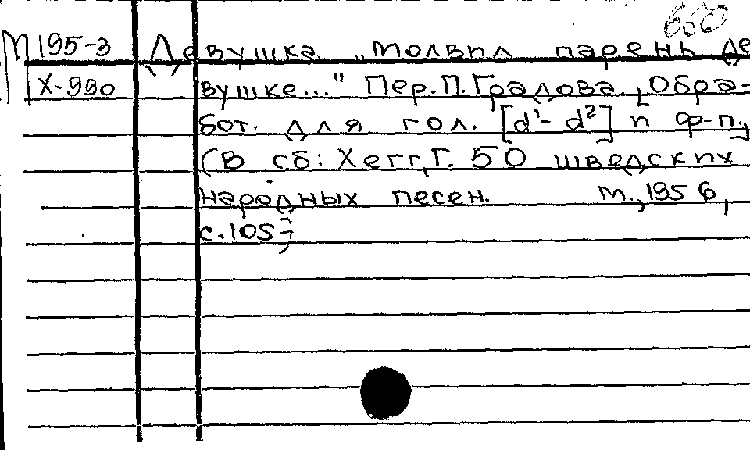 М 195-3 Девушка. „Молвил парень де-
X-990 вушке..." Пер. П. Градова. Обра-
бот. для гол. [d¹- d²] и ф-п.
(В сб: Хегг, Г. 50 шведских
народных песен. М., 1956,
с. 105-